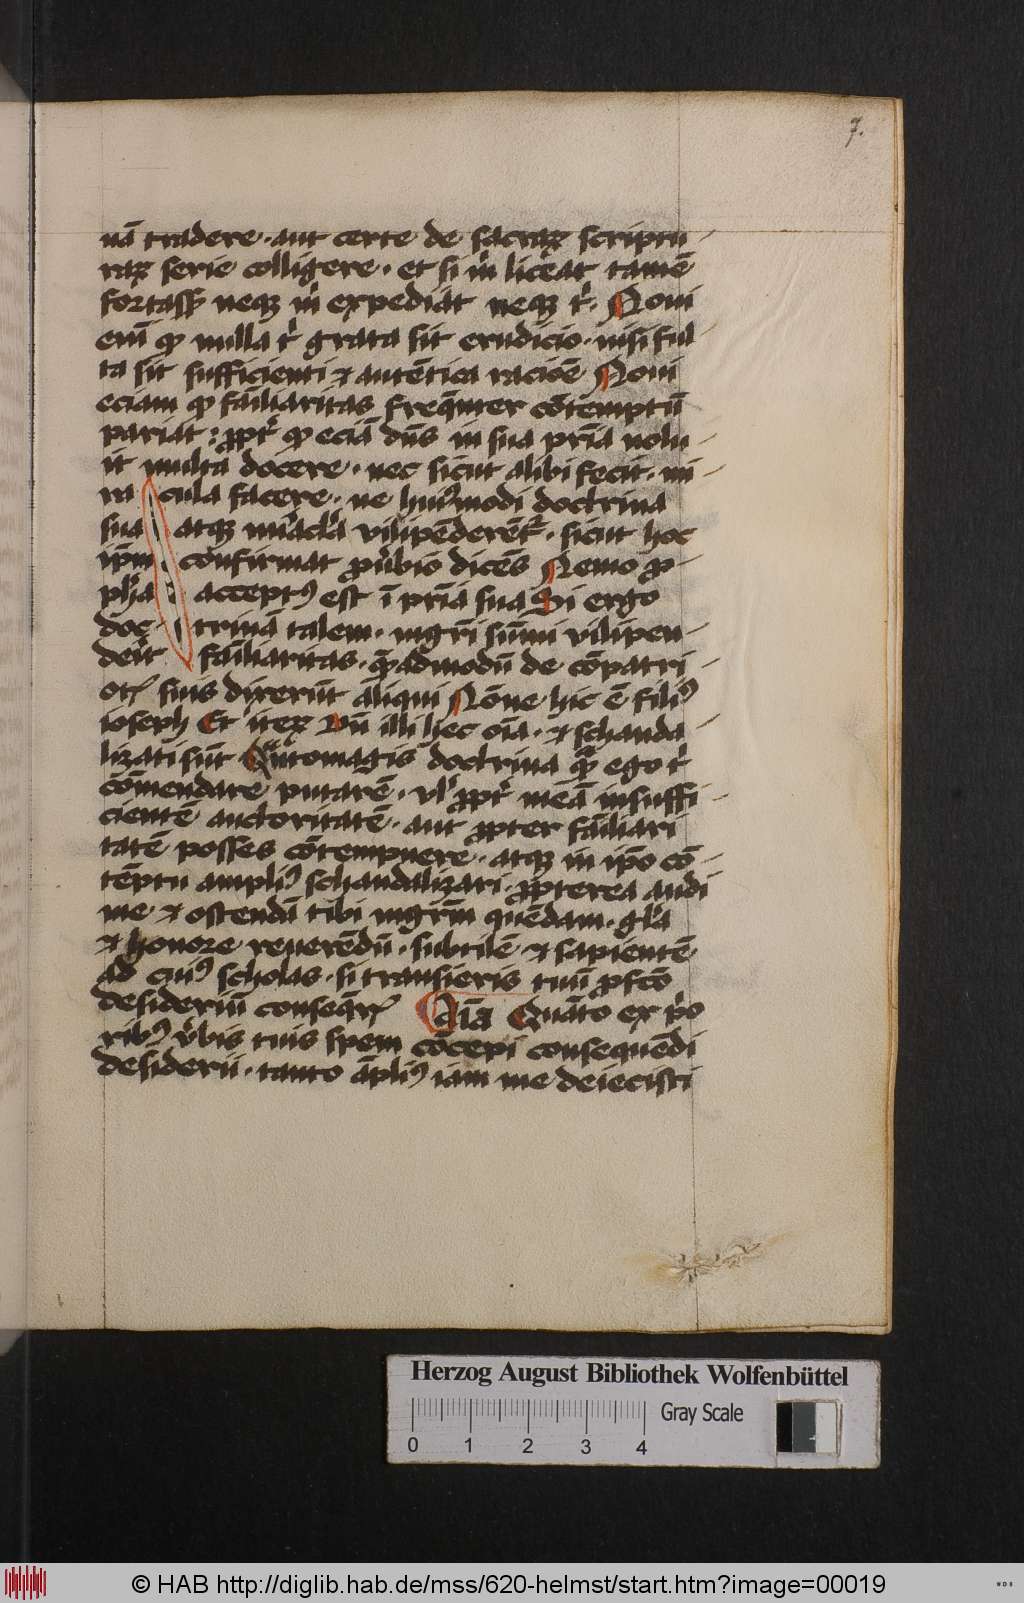 7.
nā tradere · aut certe de sacraꝝ scriptu-
raꝝ serie colligere · et si m̄ liceat tamē
fortass̄ neqꝫ m̄ expediat neqꝫ t̄ · Noui
eni ꝙ nulla t̄ grata sit erudicio · nisi ful
ta sit sufficienti ⁊ autētica racōe Noui
eciam ꝙ fāiliaritas freqn̄ter cōtemptū
pariat : ꝓpt̄ ꝙ eciā dn̄s in sua pr̄ia nolu-
it multa docere · nec sicut alibi fecit · mi-
ra cula facere · ne huiꝰmodi doctrina
sua atqꝫ mir̄acl̄a vilipēderēt̄ · sicut hoc
ip̄m confirmat ꝓu̇bio dicēs Nemo ꝓ-
ph̄a acceptꝰ est ī pr̄ia sua Si ergo
doc- trinā talem · mgr̄i sūmi vilipen-
deīt fāiliaritas · q̄madmodū de cōpatri-
ot̄ suis dixerūt āliqui Nōne hic ē filiꝰ
ioseph Et iteꝝ Dū illi hec oīa · ⁊ schanda-
lizati sūt · Quātomagis doctrina qᷓ ego t̄
cōmendare putarē · vl̄ ꝓpt̄ meā insuffi-
cientē auctoritatē · aut ꝓpter fāiliari
tatē posses cōtempnere · atqꝫ in ip̄o cō-
tēptu ampliꝰ schandalizari · ꝓpterea audi
me ⁊ ostendā tibi mgr̄m quēdam · gl̄a
⁊ honore reuerēdū · subtilē · ⁊ sapientē
ad cuiꝰ scholas · si transieris tuū ꝓfc̄o
desideriū conseq̄r̄ Aīa Quāto ex p̄o
ribꝰ v̄bis tuis spem cōcepi consequēdi
desiderii · tanto āpliꝰ iam me deiecisti
Herzog August Bibliothek Wolfenbüttel
Gray Scale
0 1 2 3 4
© HAB http://diglib.hab.de/mss/620-helmst/start.htm?image=00019